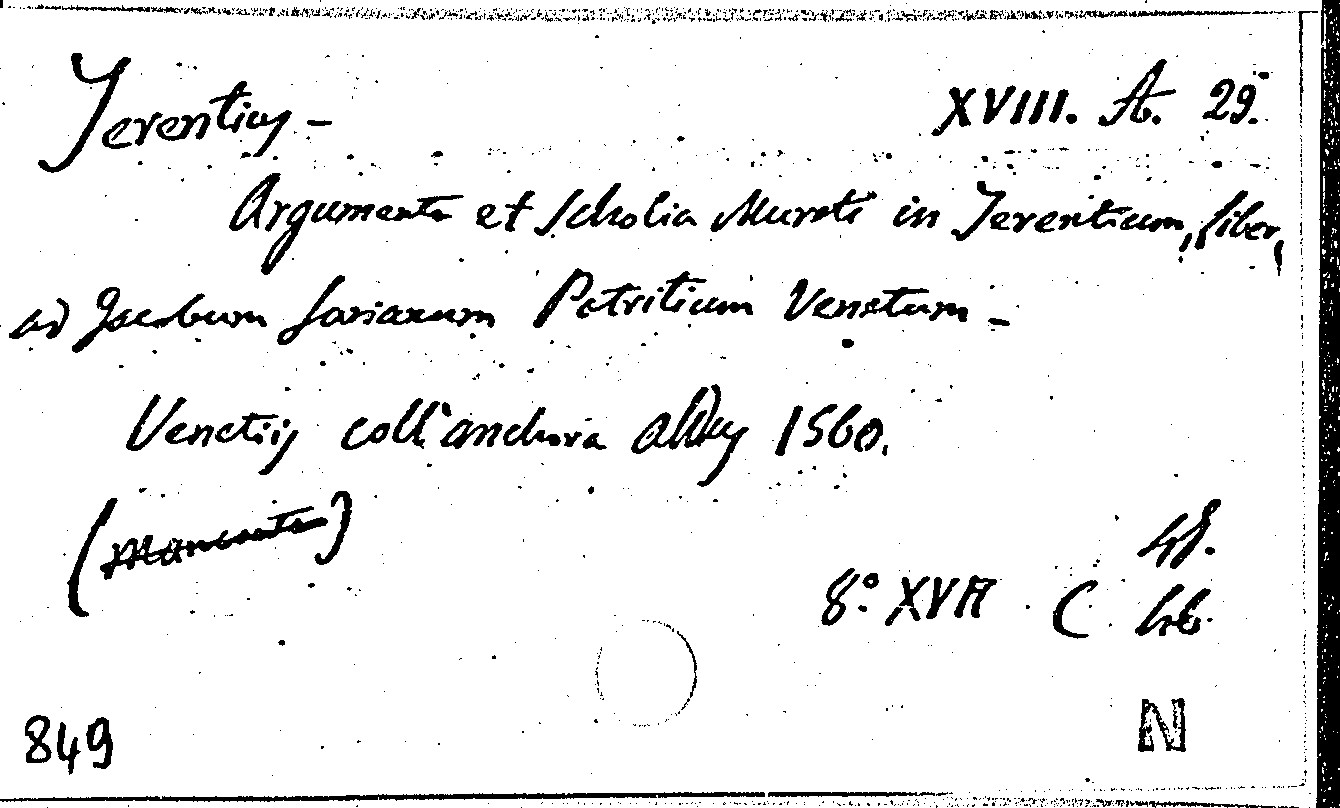 Terentius –
XVIII. A. 29.
Argumenta et Scholia Mureti in Terentium, liber,
ad Jacobum Soriarum Patritium Venetum –
Venetiis coll'anchora aldus 1560.
(mancante)
48.
8.° XVI C 46.
849
N